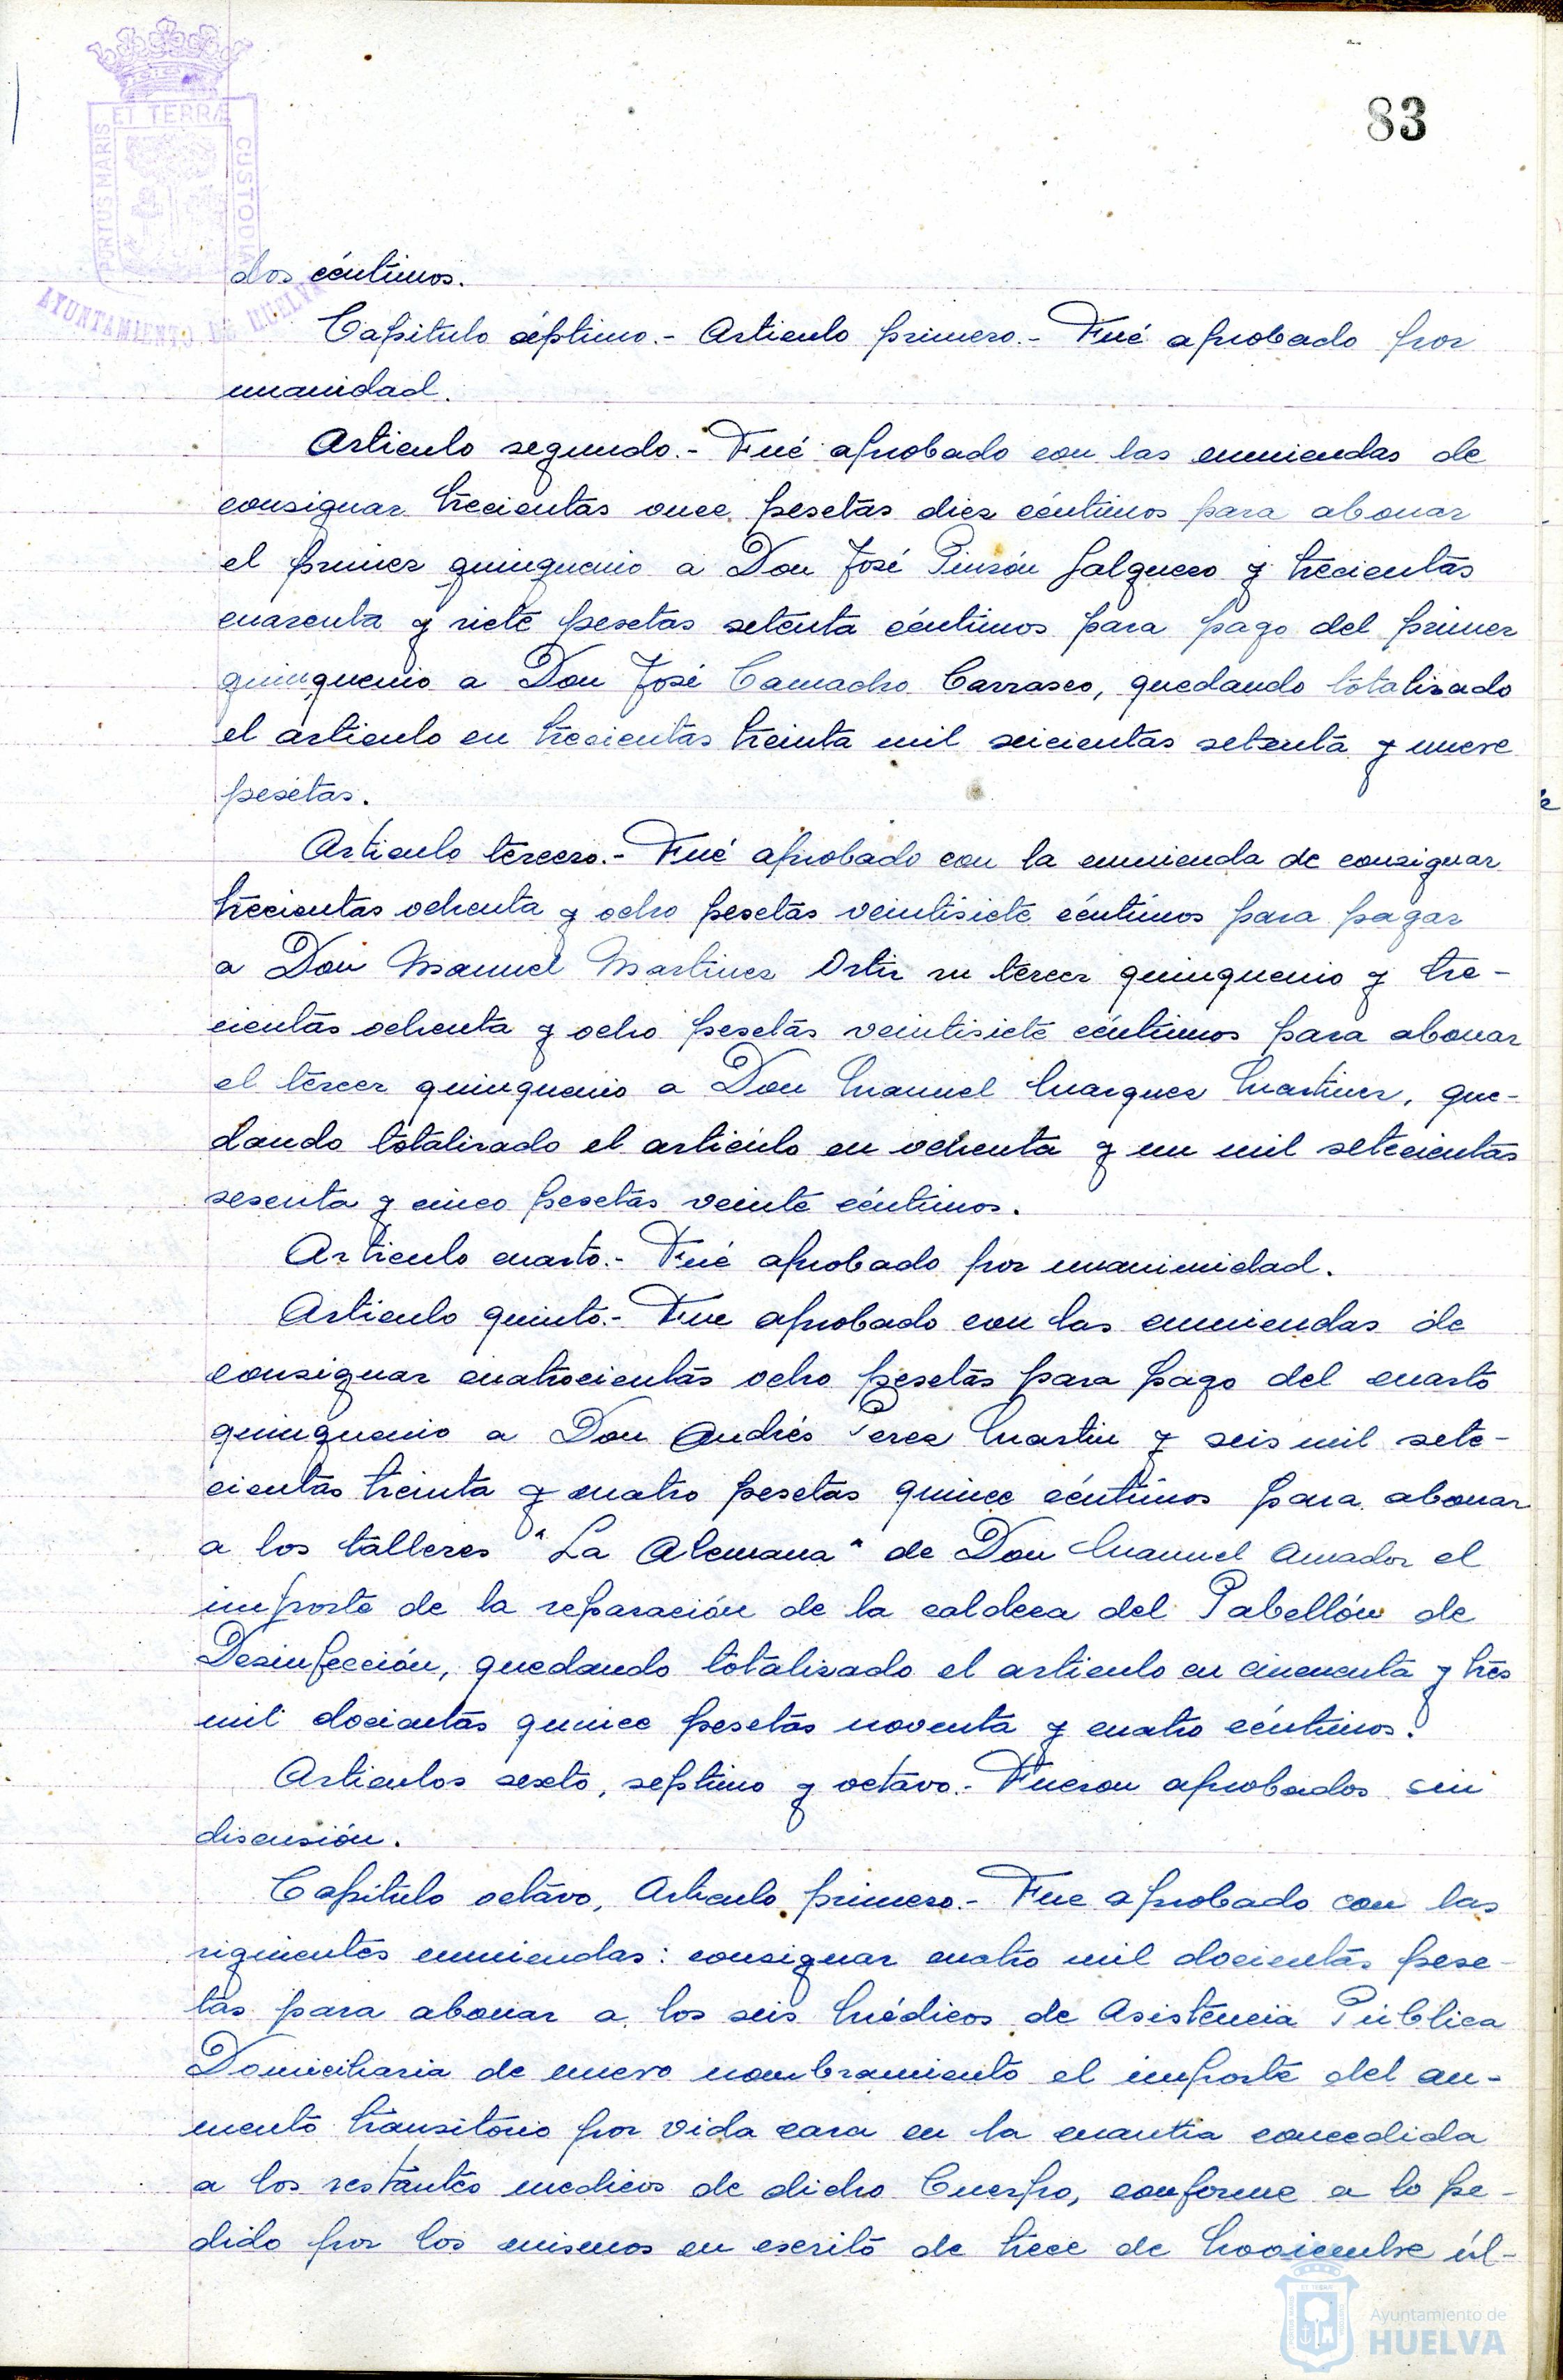 83
ET TERRÆ
PORTUS MARIS
CUSTODIA
AYUNTAMIENTO DE HUELVA
dos céntimos.
Capitulo séptimo.- Articulo primero.- Fué aprobado por
unanidad.
Articulo segundo.- Fué aprobado con las enmiendas de
consignar trecientas once pesetas diez céntimos para abonar
el primer quinquenio a Don José Pinzón Salguero y trecientas
cuarenta y siete pesetas setenta céntimos para pago del primer
quinquenio a Don José Camacho Carrasco, quedando totalizado
el articulo en trecientas treinta mil seicientas setenta y nueve
pesetas.
Articulo tercero.- Fué aprobado con la enmienda de consignar
trecientas ochenta y ocho pesetas veintisiete céntimos para pagar
a Don Manuel Martinez Ortiz su tercer quinquenio y tre-
cientas ochenta y ocho pesetas veintisiete céntimos para abonar
el tercer quinquenio a Don Manuel Marquez Martinez, que-
dando totalizado el articulo en ochenta y un mil setecientas
sesenta y cinco pesetas veinte céntimos.
Articulo cuarto.- Fué aprobado por unanimidad.
Articulo quinto.- Fue aprobado con las enmiendas de
consignar cuatrocientas ocho pesetas para pago del cuarto
quinquenio a Don Andrés Perez Martin y seis mil sete-
cientas treinta y cuatro pesetas quince céntimos para abonar
a los talleres "La Alemana" de Don Manuel Amador el
importe de la reparación de la caldera del Pabellón de
Desinfección, quedando totalizado el articulo en cincuenta y tres
mil docientas quince pesetas noventa y cuatro céntimos.
Articulos sexto, septimo y octavo.- Fueron aprobados sin
discusión.
Capitulo octavo, Articulo primero.- Fue aprobado con las
siguientes enmiendas: consignar cuatro mil docientas pese-
tas para abonar a los seis Médicos de Asistencia Pública
Domiciliaria de nuevo nombramiento el importe del au-
mento transitorio por vida cara en la cuantia concedida
a los restantes medicos de dicho Cuerpo, conforme a lo pe-
dido por los mismos en escrito de trece de Noviembre úl-
Ayuntamiento de
HUELVA